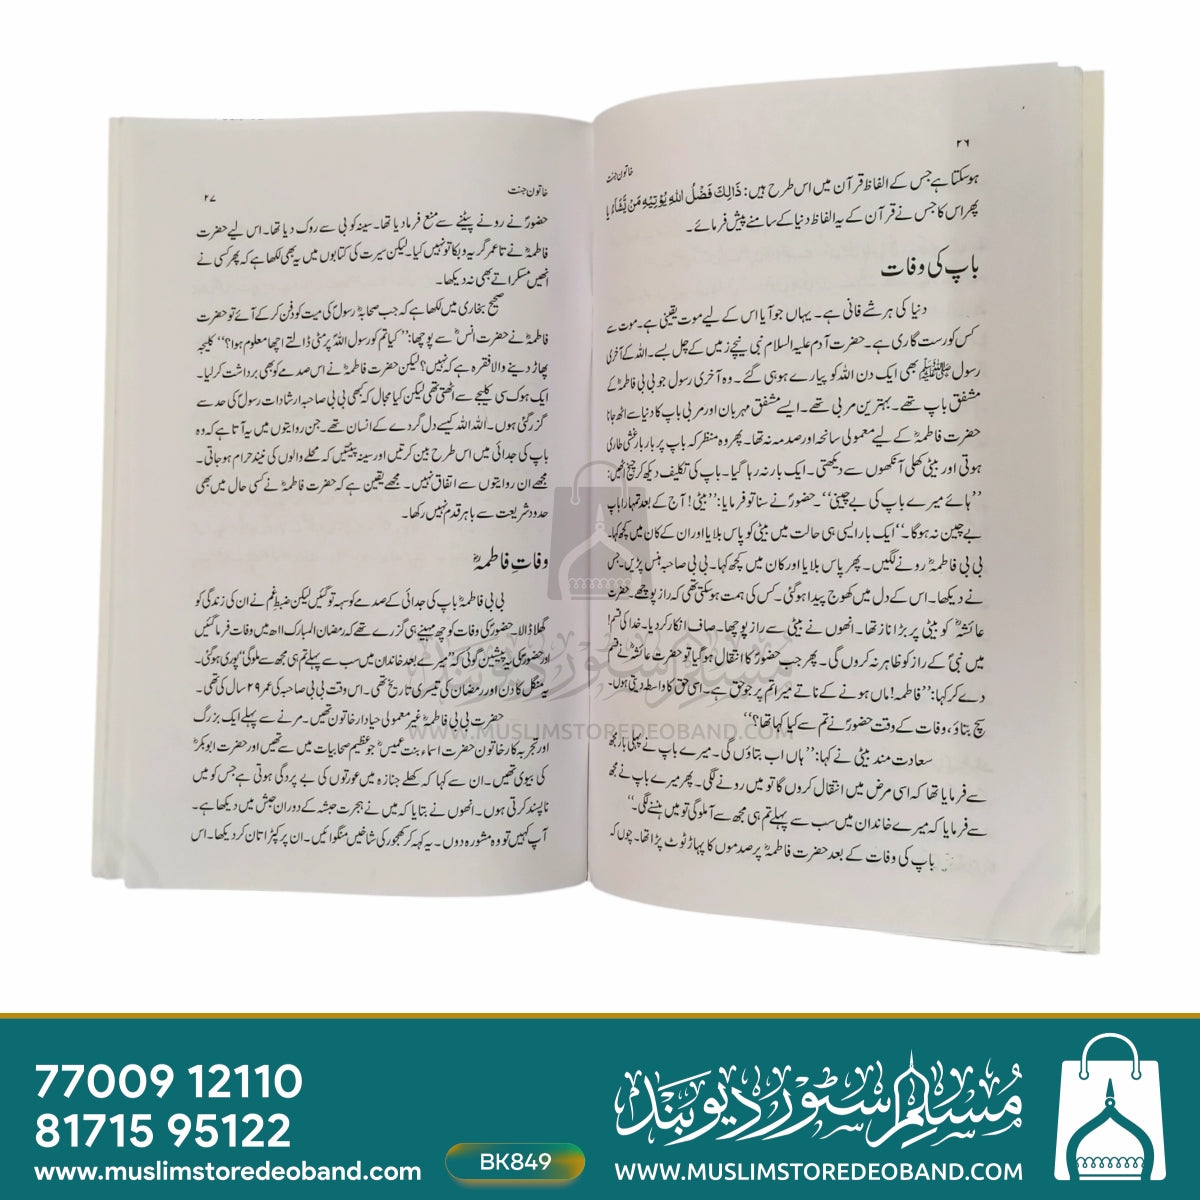 ۲۶
خاتون جنت
ہوسکتا ہے جس کے الفاظ قرآن میں اس طرح ہیں: ذَالِكَ فَضْلُ اللهِ يُؤتِيهِ مَنْ يَّشَاءُ یا
پھر اس کا جس نے قرآن کے یہ الفاظ دنیا کے سامنے پیش فرمائے۔
باپ کی وفات
دنیا کی ہر شے فانی ہے۔ یہاں جو آیا اس کے لیے موت یقینی ہے۔ موت سے
کس کو رستگاری ہے۔ حضرت آدم علیہ السلام نبی نیچے زمیں کے چل بسے۔ اللہ کے آخری
رسول ﷺ بھی ایک دن اللہ کو پیارے ہو ہی گئے۔ وہ آخری رسول جو بی بی فاطمہؓ کے
مشفق باپ تھے۔ بہترین مربی تھے۔ ایسے مشفق مہربان اور مربی باپ کا دنیا سے اٹھ جانا
حضرت فاطمہؓ کے لیے معمولی سانحہ اور صدمہ نہ تھا۔ پھر وہ منظر کہ باپ پر بار بار غشی طاری
ہوتی اور بیٹی کھلی آنکھوں سے دیکھتی۔ ایک بار نہ رہا گیا۔ باپ کی تکلیف دیکھ کر چیخ اٹھیں:
’’ہائے میرے باپ کی بے چینی‘‘۔ حضورؐ نے سنا تو فرمایا: ’’بیٹی! آج کے بعد تمہارا باپ
بے چین نہ ہوگا۔‘‘ ایک بار ایسی ہی حالت میں بیٹی کو پاس بلایا اور ان کے کان میں کچھ کہا۔
بی بی فاطمہؓ رونے لگیں۔ پھر پاس بلایا اور کان میں کچھ کہا۔ بی بی صاحبہ ہنس پڑیں۔ جس
نے دیکھا۔ اس کے دل میں کھوج پیدا ہوگئی۔ کس کی ہمت ہو سکتی تھی کہ راز پوچھے۔ حضرت
عائشہؓ کو بیٹی پر بڑا ناز تھا۔ انھوں نے بیٹی سے راز پوچھا۔ صاف انکار کر دیا۔ خدا کی قسم!
میں نبیؐ کے راز کو ظاہر نہ کروں گی۔ پھر جب حضورؐ کا انتقال ہو گیا تو حضرت عائشہؓ نے قسم
دے کر کہا: ’’فاطمہ! ماں ہونے کے ناتے میرا تم پر جو حق ہے۔ اسی حق کا واسطہ دیتی ہوں۔
سچ بتاؤ، وفات کے وقت حضورؐ نے تم سے کیا کہا تھا؟‘‘
سعادت مند بیٹی نے کہا: ’’ہاں اب بتاؤں گی۔ میرے باپ نے پہلی بار مجھ
سے فرمایا تھا کہ اسی مرض میں انتقال کروں گا تو میں رونے لگی۔ پھر میرے باپ نے مجھ
سے فرمایا کہ میرے خاندان میں سب سے پہلے تم ہی مجھ سے آملو گی تو میں ہنسنے لگی۔‘‘
باپ کی وفات کے بعد حضرت فاطمہؓ پر صدموں کا پہاڑ ٹوٹ پڑا تھا۔ چوں کہ
خاتون جنت
۲۷
حضورؐ نے رونے پیٹنے سے منع فرما دیا تھا۔ سینہ کوبی سے روک دیا تھا۔ اس لیے حضرت
فاطمہؓ نے تا عمر گریہ و بکا تو نہیں کیا۔ لیکن سیرت کی کتابوں میں یہ بھی لکھا ہے کہ پھر کسی نے
انھیں مسکراتے بھی نہ دیکھا۔
صحیح بخاری میں لکھا ہے کہ جب صحابہؓ رسولؐ کی میت کو دفن کر کے آئے تو حضرت
فاطمہؓ نے حضرت انسؓ سے پوچھا: ’’کیا تم کو رسول اللہؐ پر مٹی ڈالتے اچھا معلوم ہوا؟‘‘ کلیجہ
پھاڑ دینے والا فقرہ ہے کہ نہیں؟ لیکن حضرت فاطمہؓ نے اس صدمے کو بھی برداشت کر لیا۔
ایک ہوک سی کلیجے سے اٹھتی تھی لیکن کیا مجال کہ کبھی بی بی صاحبہ ارشادات رسولؐ کی حد سے
گزر گئی ہوں۔ اللہ اللہ کیسے دل گردے کے انسان تھے۔ جن روایتوں میں یہ آتا ہے کہ وہ
باپ کی جدائی میں اس طرح بین کرتیں اور سینہ پیٹتیں کہ محلے والوں کی نیند حرام ہو جاتی۔
مجھے ان روایتوں سے اتفاق نہیں۔ مجھے یقین ہے کہ حضرت فاطمہؓ نے کسی حال میں بھی
حدود شریعت سے باہر قدم نہیں رکھا۔
وفاتِ فاطمہؓ
بی بی فاطمہؓ باپ کی جدائی کے صدمے کو سہہ تو گئیں لیکن ضبطِ غم نے ان کی زندگی کو
گھلا ڈالا۔ حضورؐ کی وفات کو چھ مہینے ہی گزرے تھے کہ رمضان المبارک ۱۱ھ میں وفات فرما گئیں
اور حضورؐ کی پیشین گوئی کہ ’’میرے بعد خاندان میں سب سے پہلے تم ہی مجھ سے ملو گی‘‘ پوری ہوگئی۔
یہ منگل کا دن اور رمضان کی تیسری تاریخ تھی۔ اس وقت بی بی صاحبہ کی عمر ۲۹ سال کی تھی۔
حضرت بی بی فاطمہؓ غیر معمولی حیا دار خاتون تھیں۔ مرنے سے پہلے ایک بزرگ
اور تجربہ کار خاتون حضرت اسماء بنت عمیسؓ جو عظیم صحابیات میں سے تھیں اور حضرت ابو بکرؓ
کی بیوی تھیں۔ ان سے کہا کہ کھلے جنازہ میں عورتوں کی بے پردگی ہوتی ہے جس کو میں
ناپسند کرتی ہوں۔ انھوں نے بتایا کہ میں نے ہجرت حبشہ کے دوران حبش میں دیکھا ہے۔
آپ کہیں تو وہ مشورہ دوں۔ یہ کہہ کر کھجور کی شاخیں منگوائیں۔ ان پر کپڑا تان کر دیکھا۔ اس
مسلم سٹور دیوبند
WWW.MUSLIMSTOREDEOBAND.COM
77009 12110
81715 95122
www.muslimstoredeoband.com
BK849
مسلم سٹور دیوبند
WWW.MUSLIMSTOREDEOBAND.COM